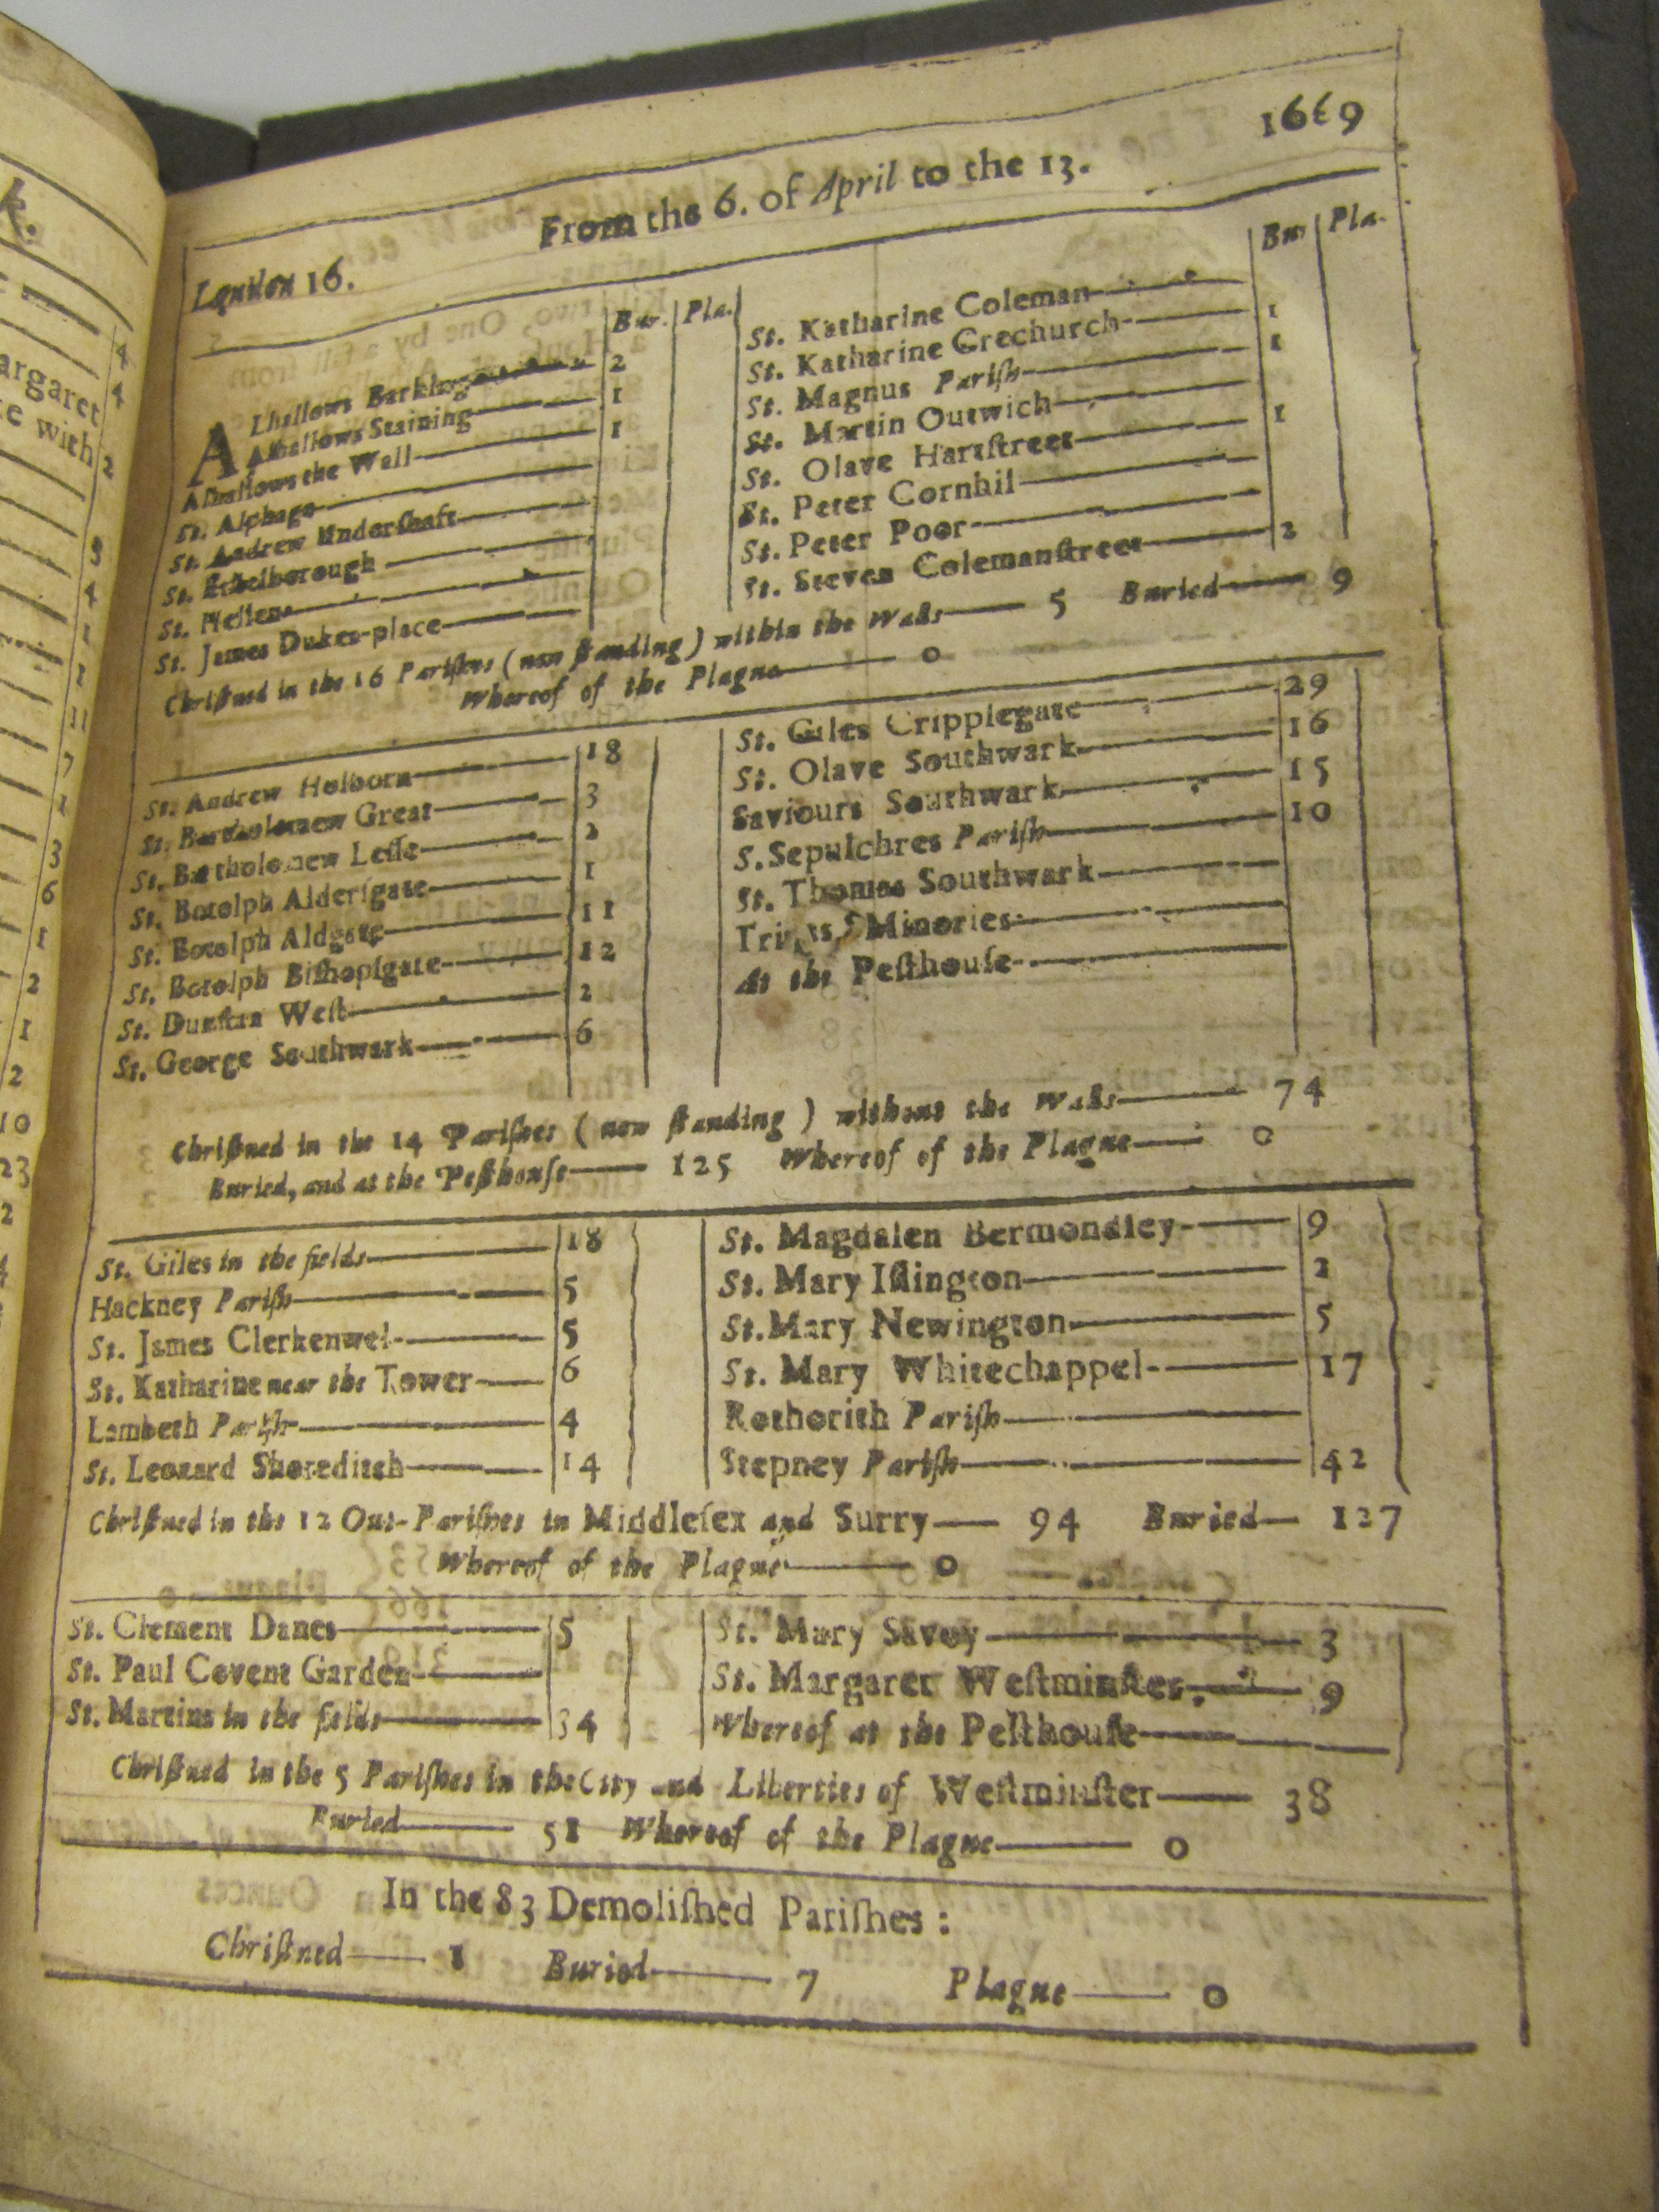 1669
From the 6. of April to the 13.
London 16.
Bur. Pla.
ALhallows Barking 2
Alhallows Staining 1
Alhallows the Wall 1
St. Alphage
St. Andrew Underſhaft
St. Ethelborough
St. Hellens
St. James Dukes-place
Bur Pla.
St. Katharine Coleman
St. Katharine Crechurch 1
St. Magnus Pariſh 1
St. Martin Outwich
St. Olave Hartſtreet 1
St. Peter Cornhil
St. Peter Poor
St. Steven Colemanſtreet 2
Chriſtned in the 16 Pariſhes (now ſtanding) within the Walls 5 Buried 9
Whereof of the Plague 0
St. Andrew Holborn 18
St. Bartholomew Great 3
St. Bartholomew Leſſe 2
St. Botolph Alderſgate 1
St. Botolph Aldgate 11
St. Botolph Biſhopſgate 12
St. Dunſtan Weſt 2
St. George Southwark 6
St. Giles Cripplegate 29
St. Olave Southwark 16
Saviours Southwark 15
S. Sepulchres Pariſh 10
St. Thomas Southwark
Minories
At the Peſthouſe
Chriſtned in the 14 Pariſhes (now ſtanding) without the Walls 74
Buried, and at the Peſthouſe 125 Whereof of the Plague 0
St. Giles in the fields 18
Hackney Pariſh 5
St. James Clerkenwel 5
St. Katharine near the Tower 6
Lambeth Pariſh 4
St. Leonard Shoreditch 14
St. Magdalen Bermondſey 9
St. Mary Iſlington 2
St. Mary Newington 5
St. Mary Whitechappel 17
Rothorith Pariſh
Stepney Pariſh 42
Chriſtned in the 12 Out-Pariſhes in Middleſex and Surry 94 Buried 127
Whereof of the Plague 0
St. Clement Danes 5
St. Paul Covent Garden
St. Martins in the fields 34
St. Mary Savoy 3
St. Margaret Weſtminſter 9
Whereof at the Peſthouſe
Chriſtned in the 5 Pariſhes in the City and Liberties of Weſtminſter 38
Buried 51 Whereof of the Plague 0
In the 83 Demoliſhed Pariſhes:
Chriſtned 1 Buried 7 Plague 0